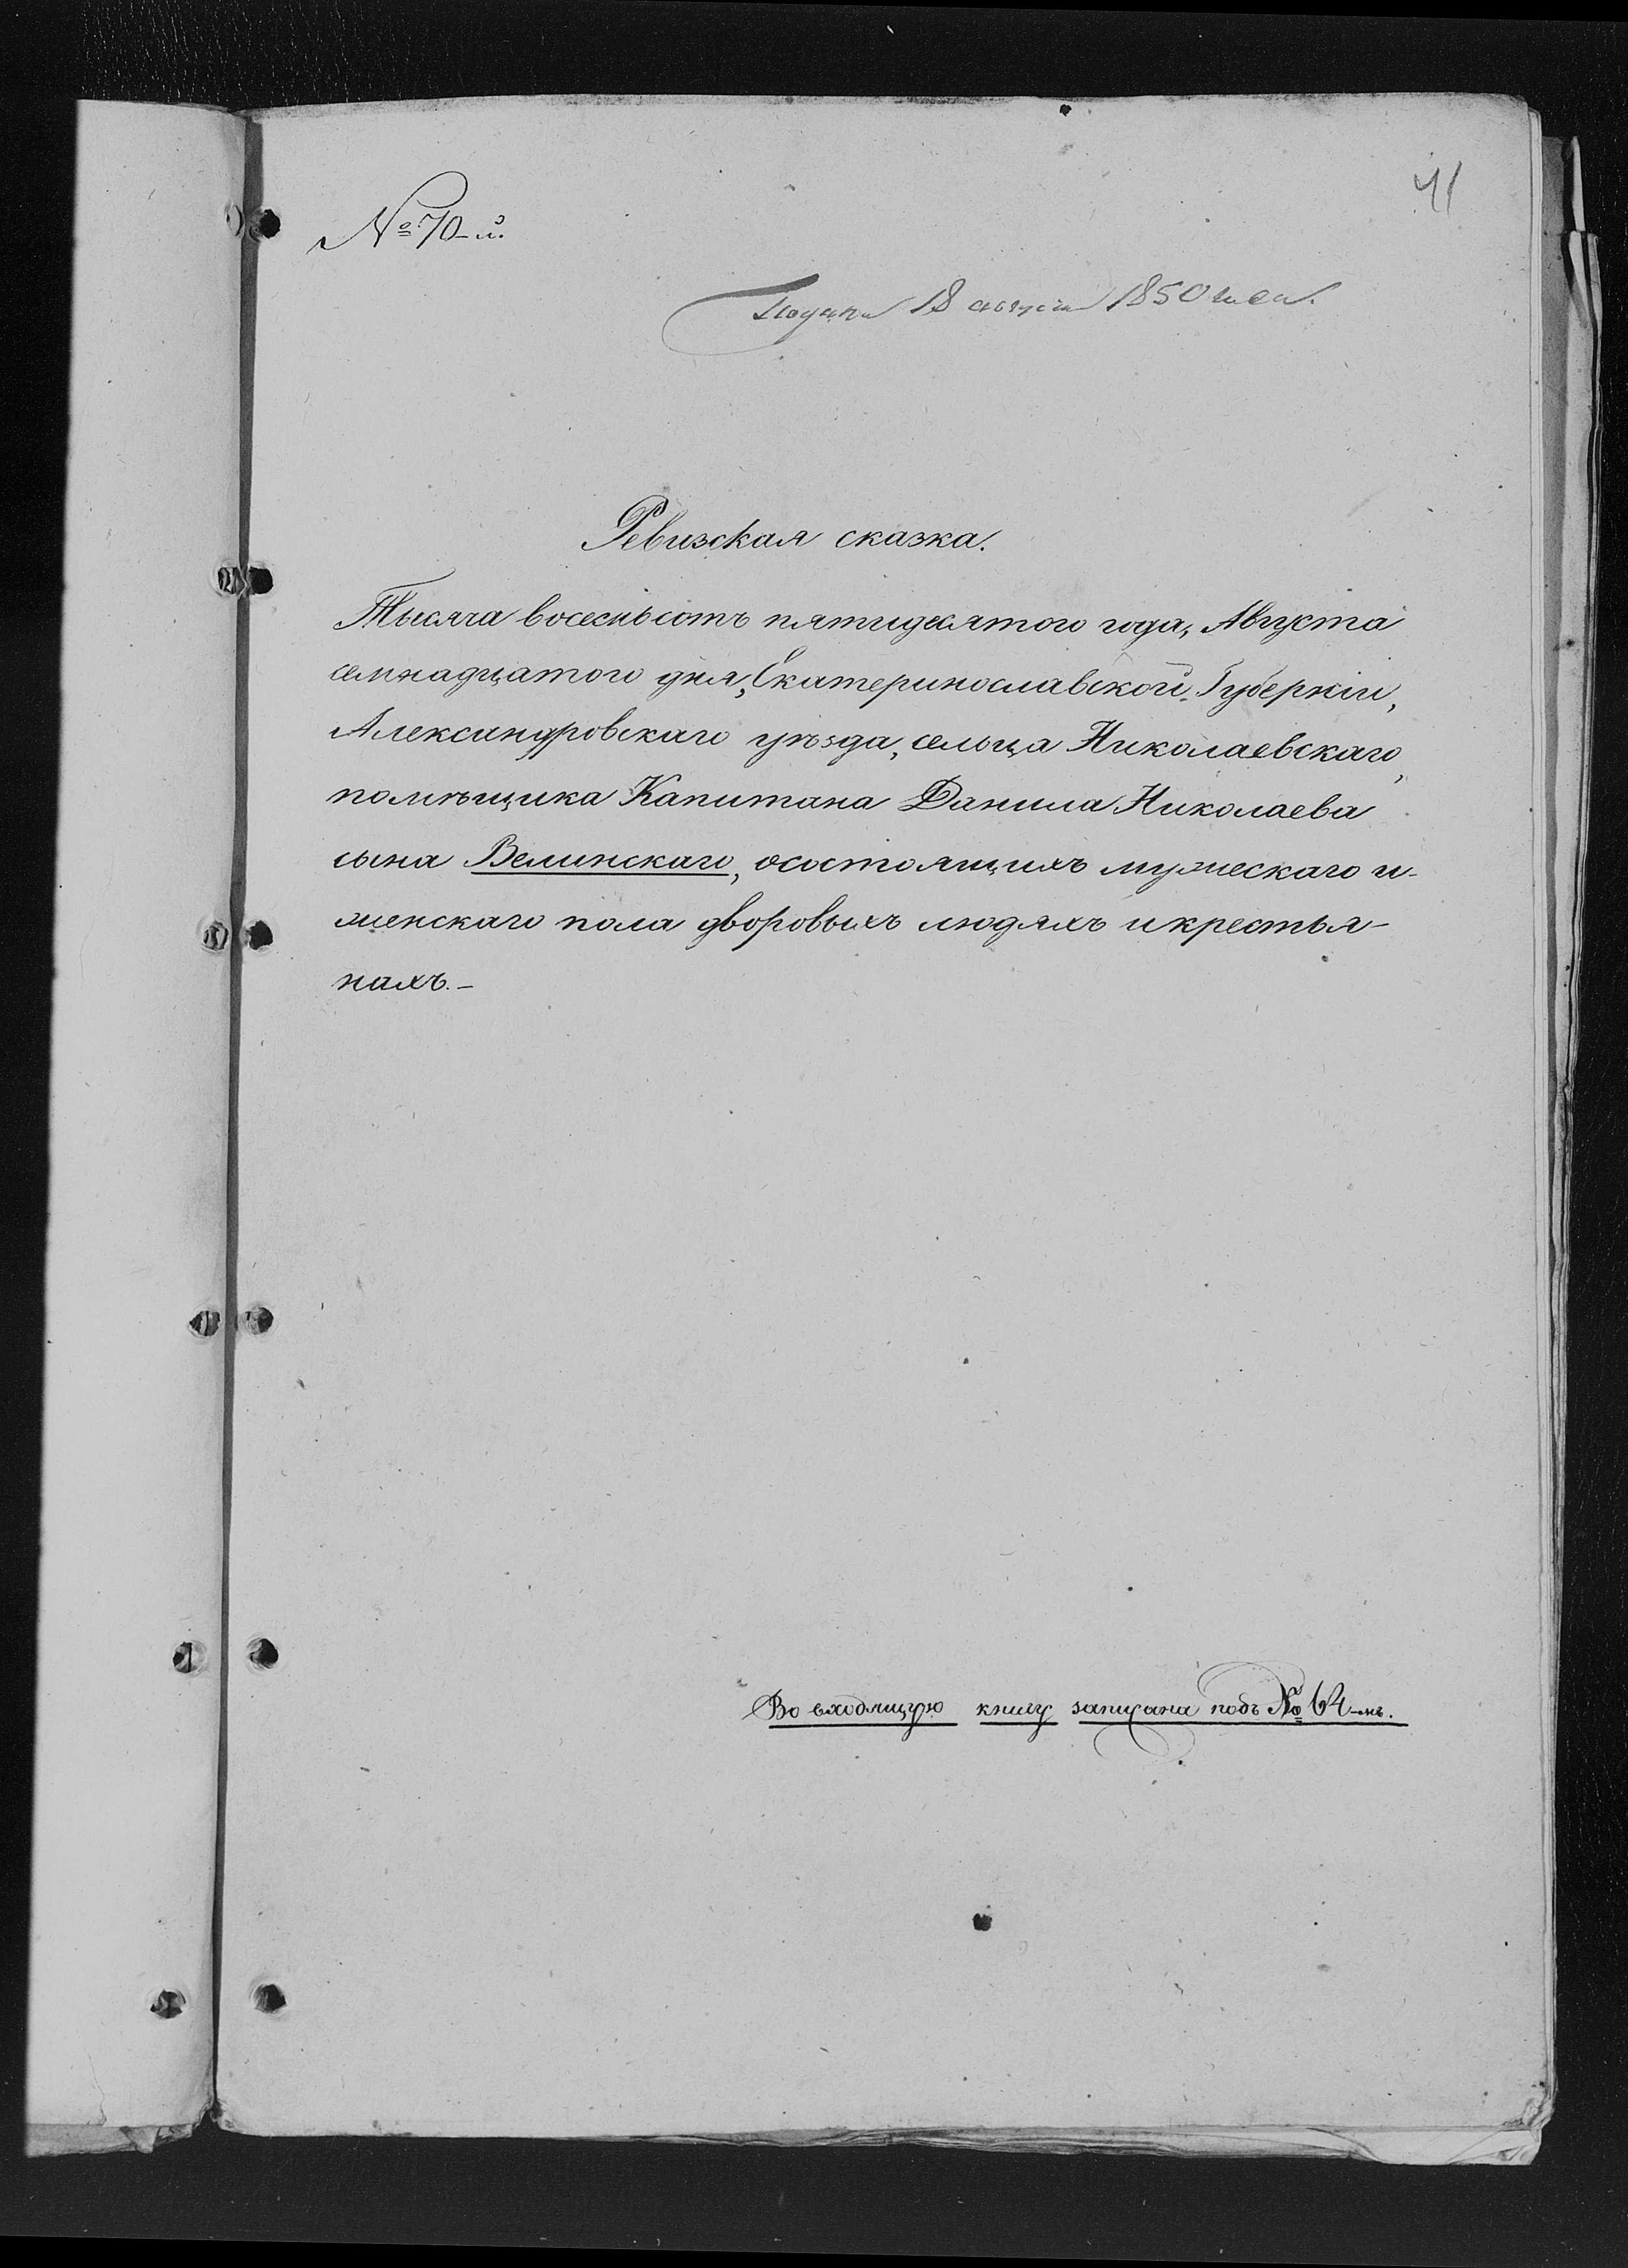 41
№ 70-й.
Подана 18 августа 1850 года.
Ревизская сказка.
Тысяча восемьсотъ пятидесятого года, Августа
семнадцатого дня, Екатеринославской Губерніи,
Александровскаго уѣзда, сельца Николаевскаго,
помѣщика Капитана Данила Николаева
сына Велинскаго, осостоящихъ мужескаго и
женскаго пола дворовыхъ людяхъ икрестья-
нахъ.-
Во входящую книгу записана подъ № 64-мъ.